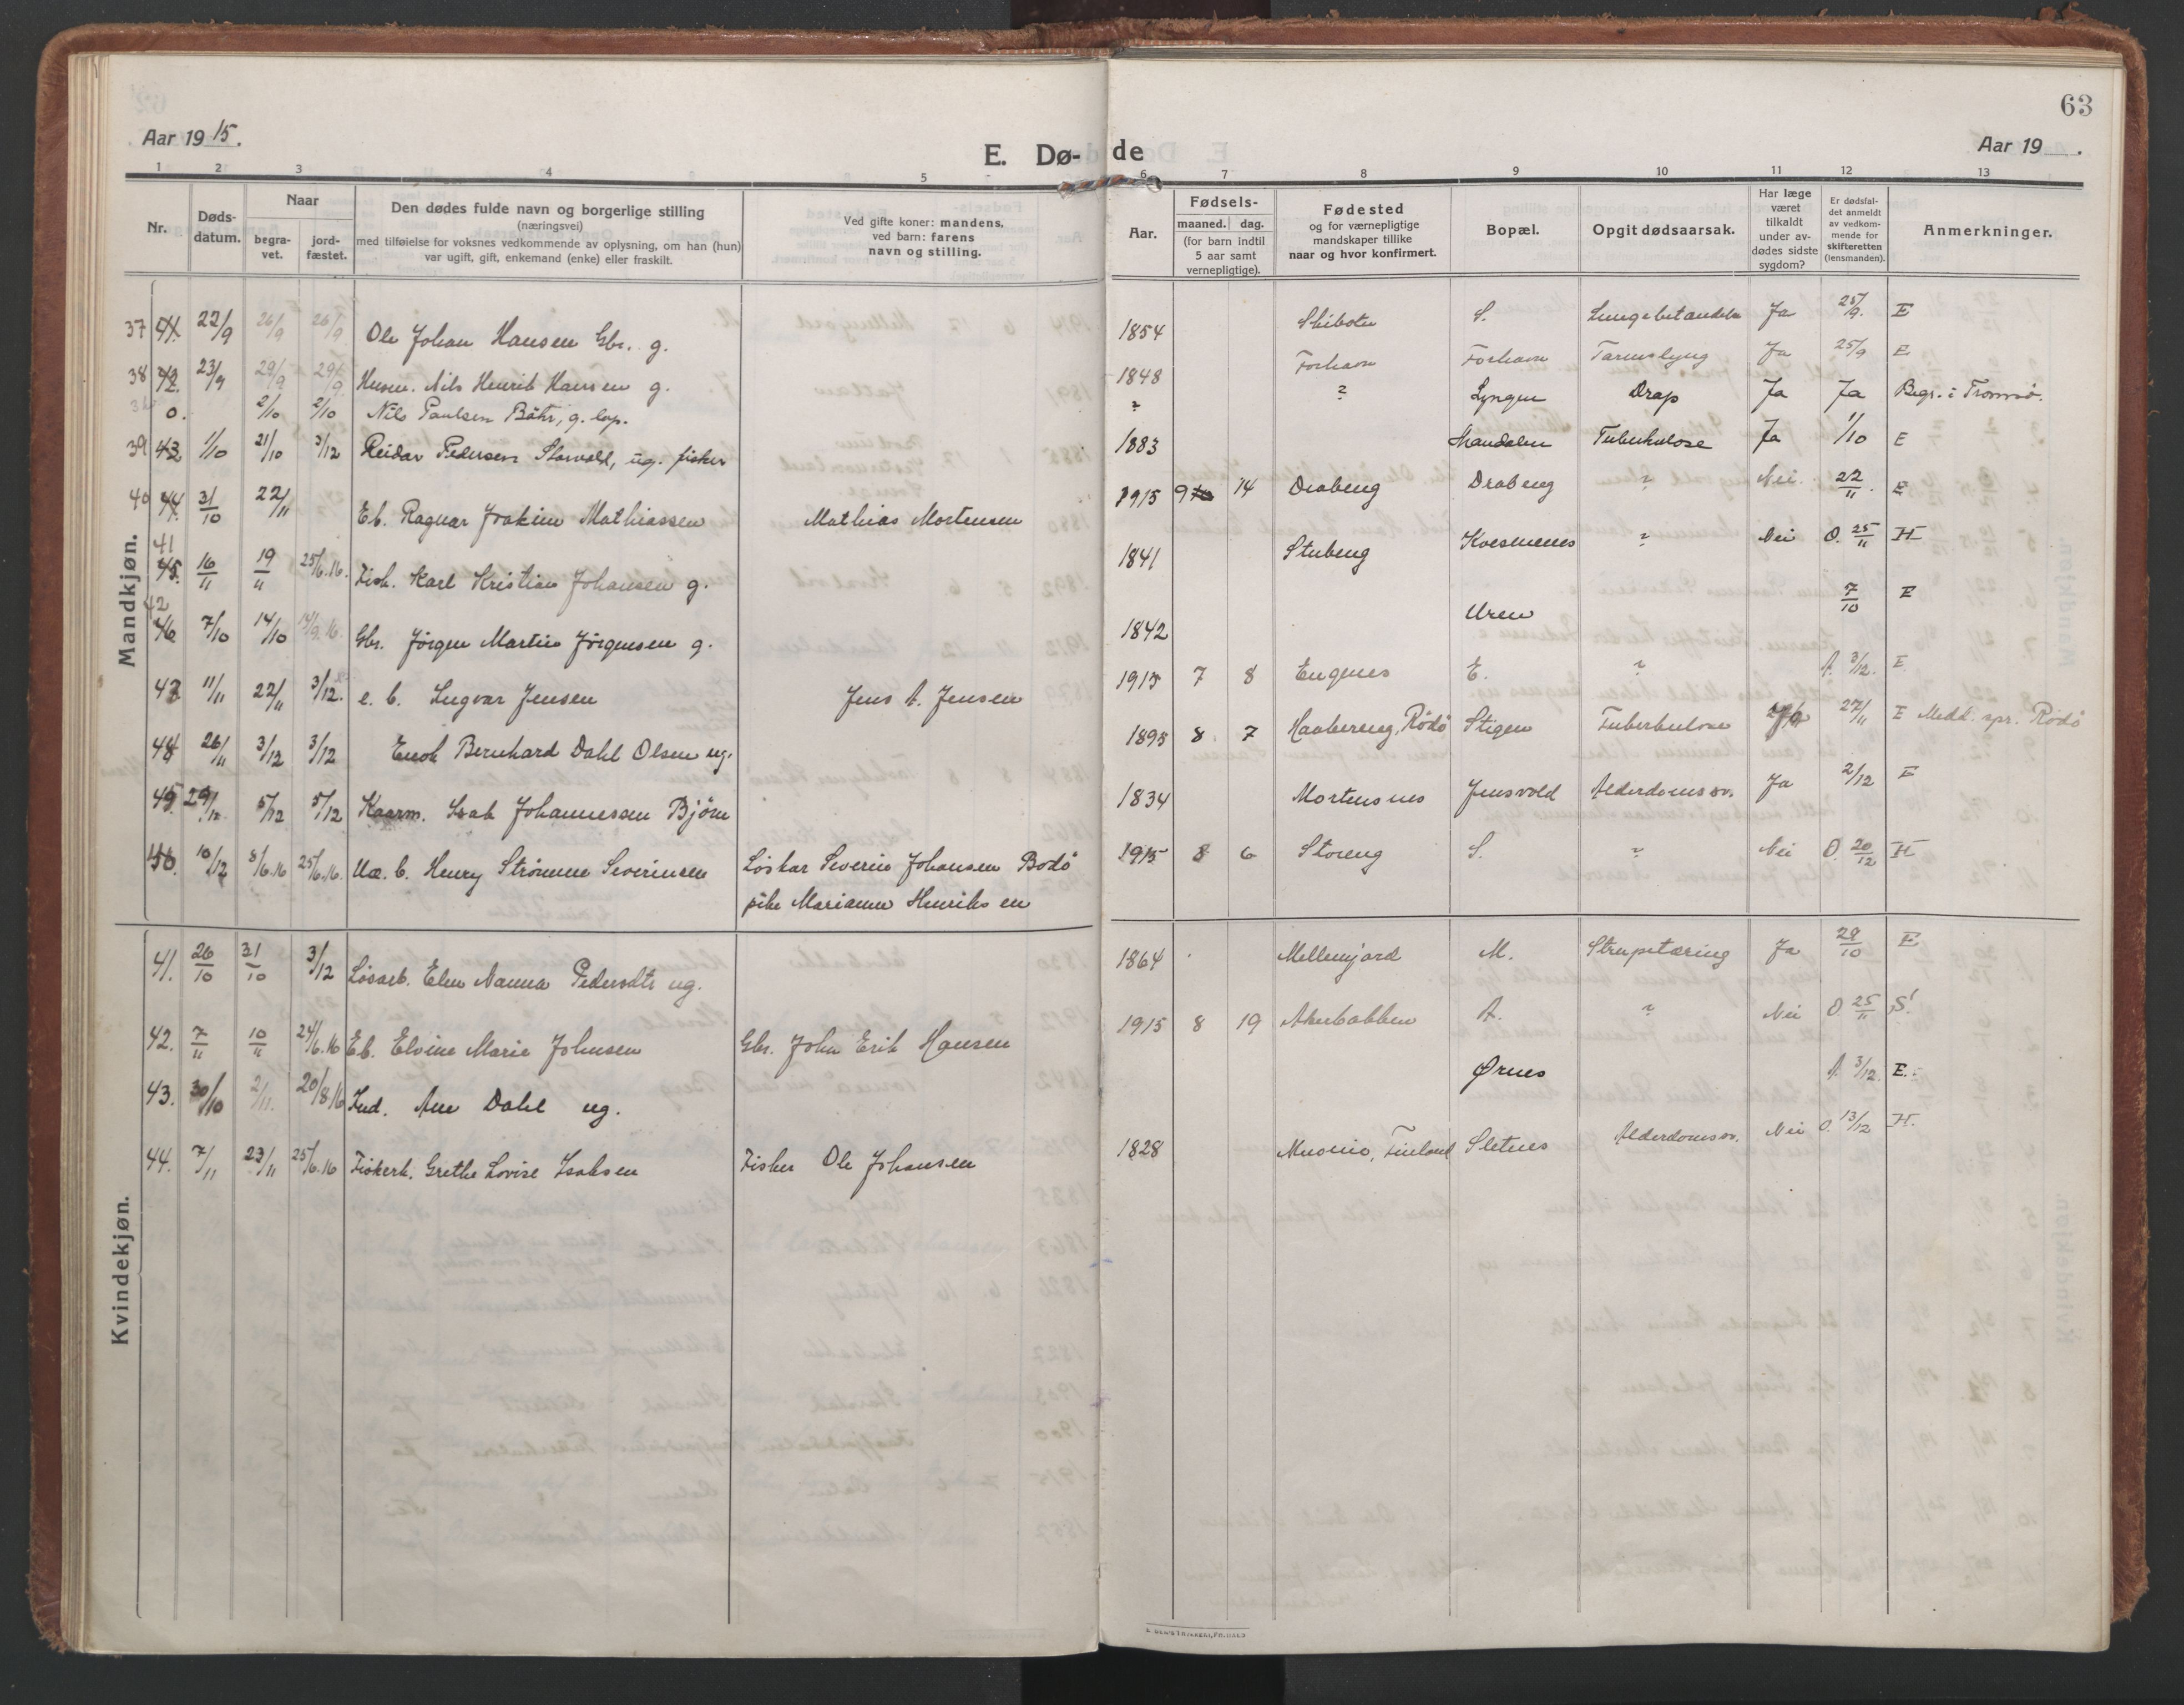 63
Aar 1915.
E. Dø- de
Aar 19 .
1 2 3 4 5 6 7 8 9 10 11 12 13
Nr.
Døds-
datum.
Naar
begra-
vet.
jord-
fæstet.
Den dødes fulde navn og borgerlige stilling
(næringsvei)
med tilføielse for voksnes vedkommende av oplysning, om han (hun)
var ugift, gift, enkemand (enke) eller fraskilt.
Ved gifte koner: mandens,
ved barn: farens
navn og stilling.
Aar.
Fødsels-
maaned. dag.
(for barn indtil
5 aar samt
vernepligtige).
Fødested
og for værnepligtige
mandskaper tillike
naar og hvor konfirmert.
Bopæl.
Opgit dødsaarsak.
Har læge
været
tilkaldt
under av-
dødes sidste
sygdom?
Er dødsfal-
det anmeldt
av vedkom-
mende for
skifteretten
(lensmanden).
Anmerkninger.
Mandkjøn.
37 41. 22/9 26/9 26/9 Ole Johan Hansen Gbr. g. 1854 Skibotn S. Lungebetændelse Ja 25/9. E
38 42 23/9 29/9 29/9 Husm. Nils Henrik Hansen g. 1848 Forhavn Forhavn Tarmslyng Ja 25/9 E
0. 2/10 2/10 Nils Paulsen Båhr, g. lap. ? ? Lyngen Drap Ja Ja Begr. i Tromsø.
39 43 1/10 21/10 3/12 Reidar Pedersen Storvold, ug. fisker 1883 Mandalen Tuberkulose Ja 1/10 E
40 44. 31/10 22/11 Eb. Ragnar Joakim Mathiassen Mathias Mortensen 1915 9 14 Drabeng Drabeng ? Nei. 22/11. E
41 45. 16/11 19/11 25/6.16. Fisk. Karl Kristian Johansen g. 1841 Stubeng Kvesmenes ? Nei O. 25/11 H
42 46 7/10 14/10 14/9.16. Gbr. Jørgen Martin Jørgensen g. 1842 Uren 7/10 E
47 11/11 22/11 3/12. e. b. Ingvar Jensen Jens A. Jensen 1915 7 8 Engenes E. ? A. 3/12. E
48 26/11 3/12 3/12 Enok Bernhard Dahl Olsen ug. 1895 8 7 Haabereng, Rödö Stigen Tuberkulose Ja 27/11 E Medd. spr. Rödö
49 29/12 5/12 5/12 Kaarm. Isak Johannessen Bjørn 1834 Mortensnes Jensvold Alderdomssv. Ja 2/12 E
50. 10/12 8/6.16 25/6.16. Uæ. b. Henry Strømme Severinsen Løskar Severin Johansen Bodö 1915 8 6 Storeng S. ? Nei O. 20/12 H
pike Marianne Henriksen
Kvindekjøn.
41. 26/10 31/10 3/12 Løsarb. Elen Nanna Pedersdtr ug. 1864 Mellemjord M. Strupetæring Ja 29/10 E
42. 7/11 10/11 24/6.16 Eb. Elvine Marie Johnsen Gbr. John Erik Hansen 1915 8 19 Akerbakken A. ? Nei O. 25/11 S!
43. 30/10 2/11. 20/8 16 Ind. Ane Dahl ug. Ørnes A. 3/12. E.
44. 7/11 23/11 25/6.16 Fiskerk. Grethe Lovise Isaksen Fisker Ole Johansen 1828 Muonio, Finland Sletnes Alderdomssv. Nei O. 13/12 H.